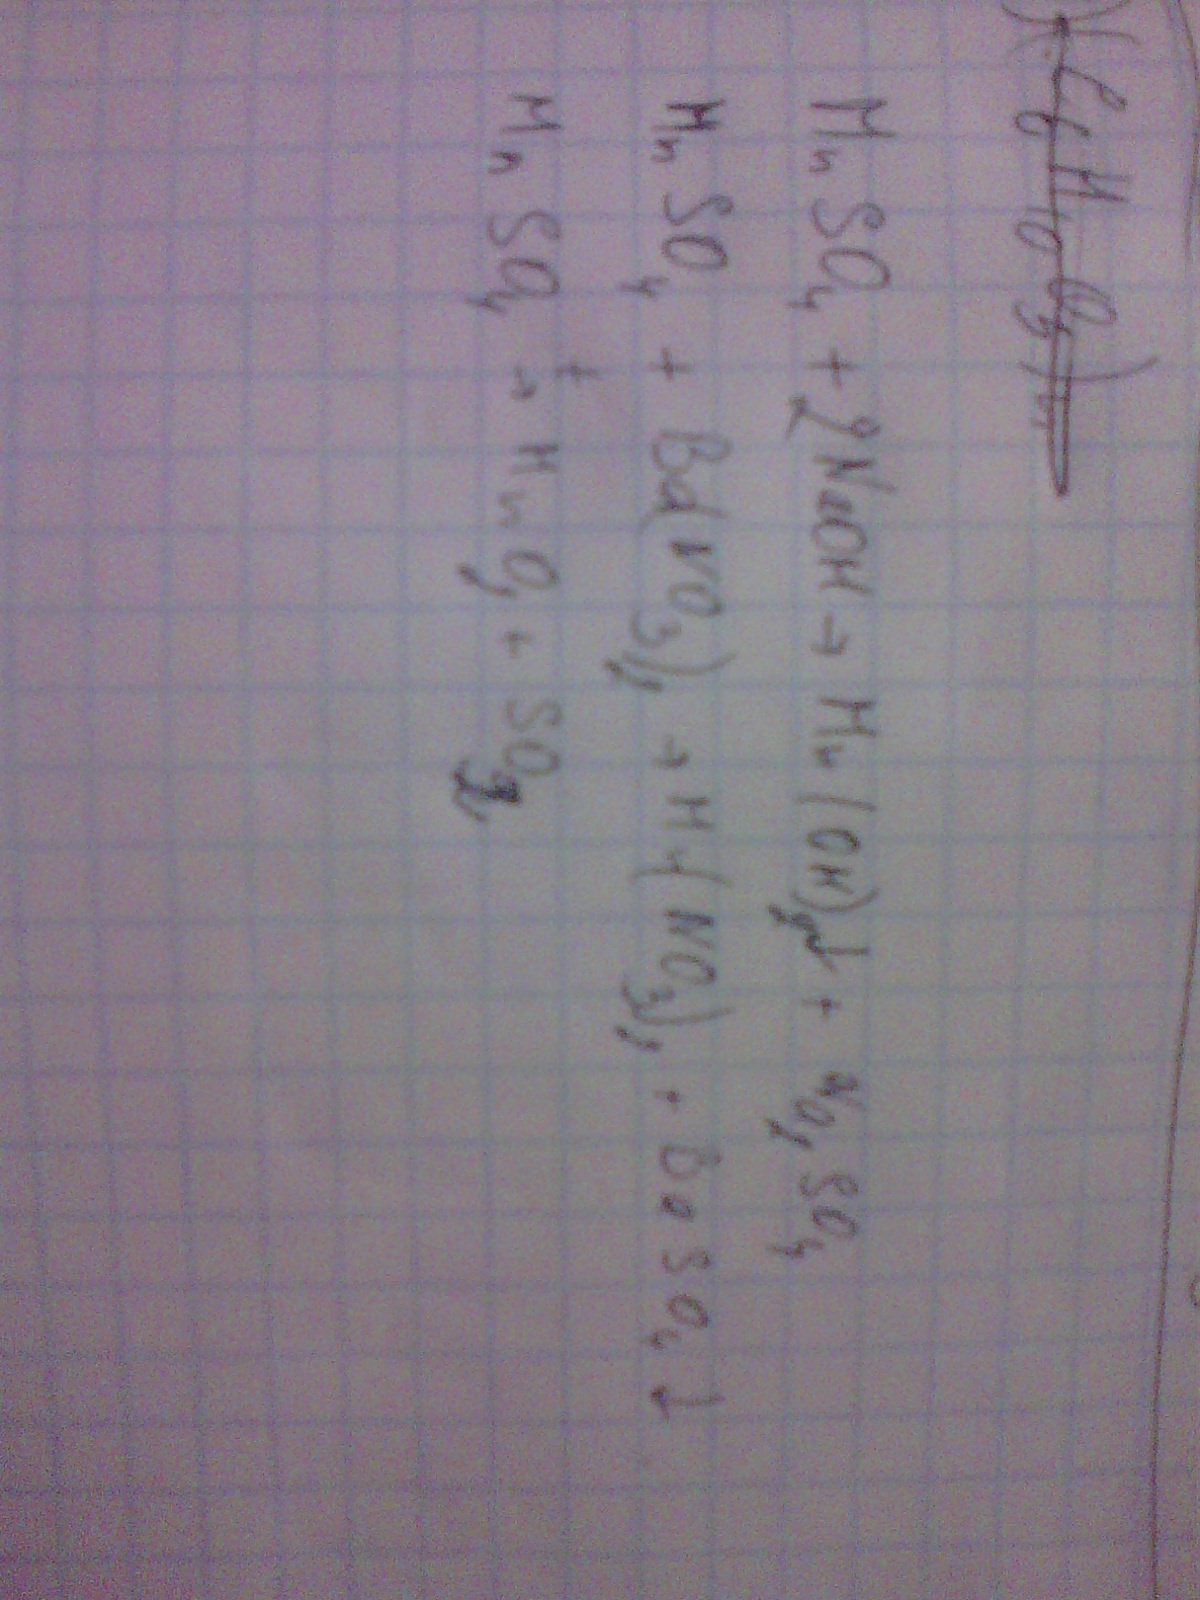 (C6H10O5)n
MnSO4 + 2NaOH → Mn(OH)2↓ + Na2SO4
MnSO4 + Ba(NO3)2 → Mn(NO3)2 + BaSO4↓
MnSO4 t→ MnO2 + SO2